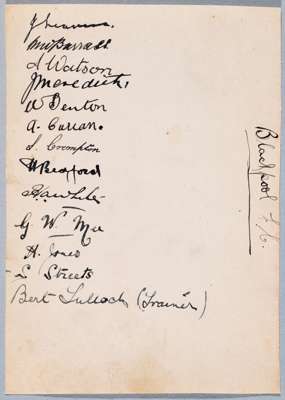 M Barrass
J Watson
J Meredith.
W Benton
A. Curran.
S. Crompton
H Bedford
White
G W. Mee
H. Jones
S Streets
Bert Tulloch (Trainer)
Blackpool F/C.